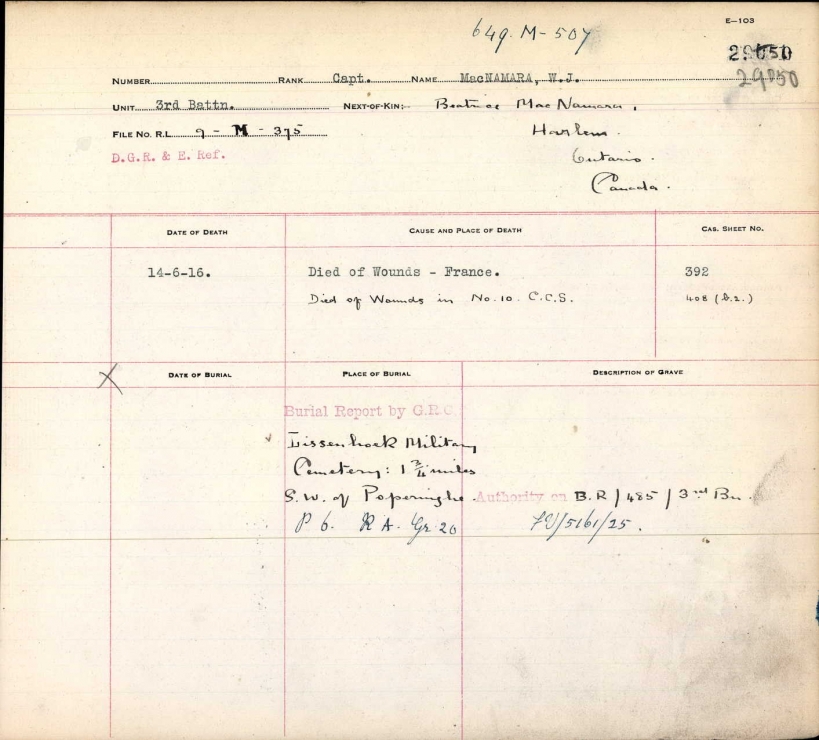 E-103
649-M-507
29050
29050
NUMBER RANK Capt. NAME MacNAMARA, W.J.
UNIT 3rd Battn. NEXT-OF-KIN:- Beatrice MacNamara,
FILE NO. R.L. 9 - M - 375 Harlem.
D.G.R. & E. Ref. Ontario.
Canada.
DATE OF DEATH CAUSE AND PLACE OF DEATH CAS. SHEET NO.
14-6-16. Died of Wounds - France. 392
Died of Wounds in No. 10 C.C.S. 408 (b.2.)
X DATE OF BURIAL PLACE OF BURIAL DESCRIPTION OF GRAVE
Burial Report by G.R.C.
Lissenhoek Military
Cemetery: 1 3/4 miles
S.W. of Poperinghe. Authority on B.R/485/3rd Bn.
P 6. R A. Gr 20 /5161/25.